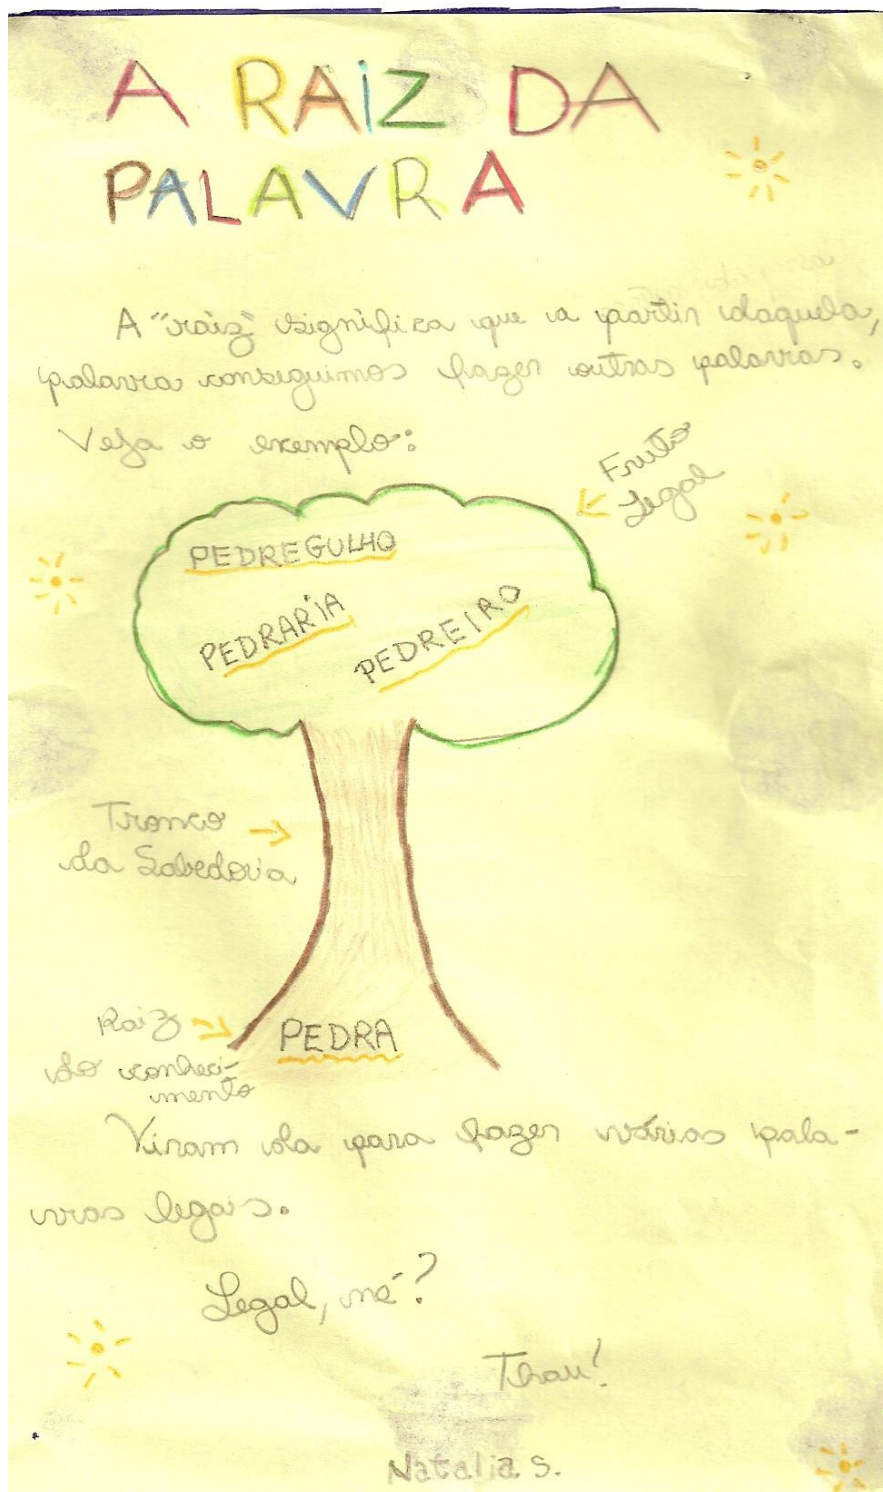 A RAIZ DA
PALAVRA
A "raiz" significa que a partir daquela,
palavra conseguimos fazer outras palavras.
Veja o exemplo:
Fruto
Legal
PEDREGULHO
PEDRARIA
PEDREIRO
Tronco
da Sabedoria
Raiz
do conheci-
mento
PEDRA
Viram da para fazer várias pala-
vras legais.
Legal, né?
Thau!
Natalia S.